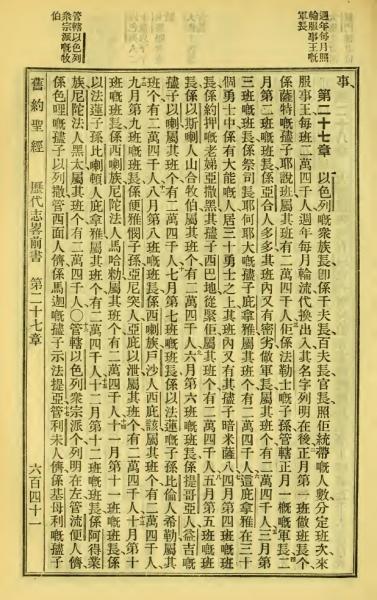 週年每月照
輪服事王嘅
軍長
管轄以色列
衆宗派嘅牧
伯
事、
第二十七章 以色列嘅衆族長卽係千夫長百夫長官長照佢統帶嘅人數分定班次來
服事王每班二萬四千人週年每月輪流代換出入其名字列明在後正月第一班做班長個
係薩特嘅孻子耶說班其屬班有二萬四千人佢係法勒士嘅子孫管轄正月一槪嘅軍長二
月第二班嘅班長係亞合人多多其班內又有密劣做軍長屬其班個有二萬四千人三月第
三班嘅班長係祭司長耶何耶大嘅孻子庇拿雅屬其班個有二萬四千人這庇拿雅在三十
個勇士中係有大能嘅人居三十勇士之上其班內又有其孻子暗米薩八四月第四班嘅班
長係約押嘅老娣亞撒黑其孻子西巴地從緊佢屬其班個有二萬四千人五月第五班嘅班
長係以斯喇人山合牧伯屬其班個有二萬四千人六月第六班嘅班長係提哥亞人益吉嘅
孻子以喇屬其班個有二萬四千人七月第七班嘅班長係以法蓮嘅子孫比倫人希勒屬其
班個有二萬四千人八月第八班嘅班長係西喇族戶沙人西庇該屬其班個有二萬四千人
九月第九班嘅班長係便雅憫子孫亞尼突人亞庇以泄屬其班個有二萬四千人十月第十
班嘅班長係西喇族尼陀法人馬哈勒屬其班個有二萬四千人十一月第十一班嘅班長係
以法蓮子孫比喇頓人庇拿雅屬其班個有二萬四千人十二月第十二班嘅班長係阿得業
族尼陀法人黑太屬其班個有二萬四千人〇管轄以色列衆宗派個列明在左管流便人儕
係色哩嘅孻子以列撒管西面人儕係馬迦嘅孻子示法提亞管利未人儕係基母利嘅孻子
舊約聖經 歷代志畧前書 第二十七章 六百四十一